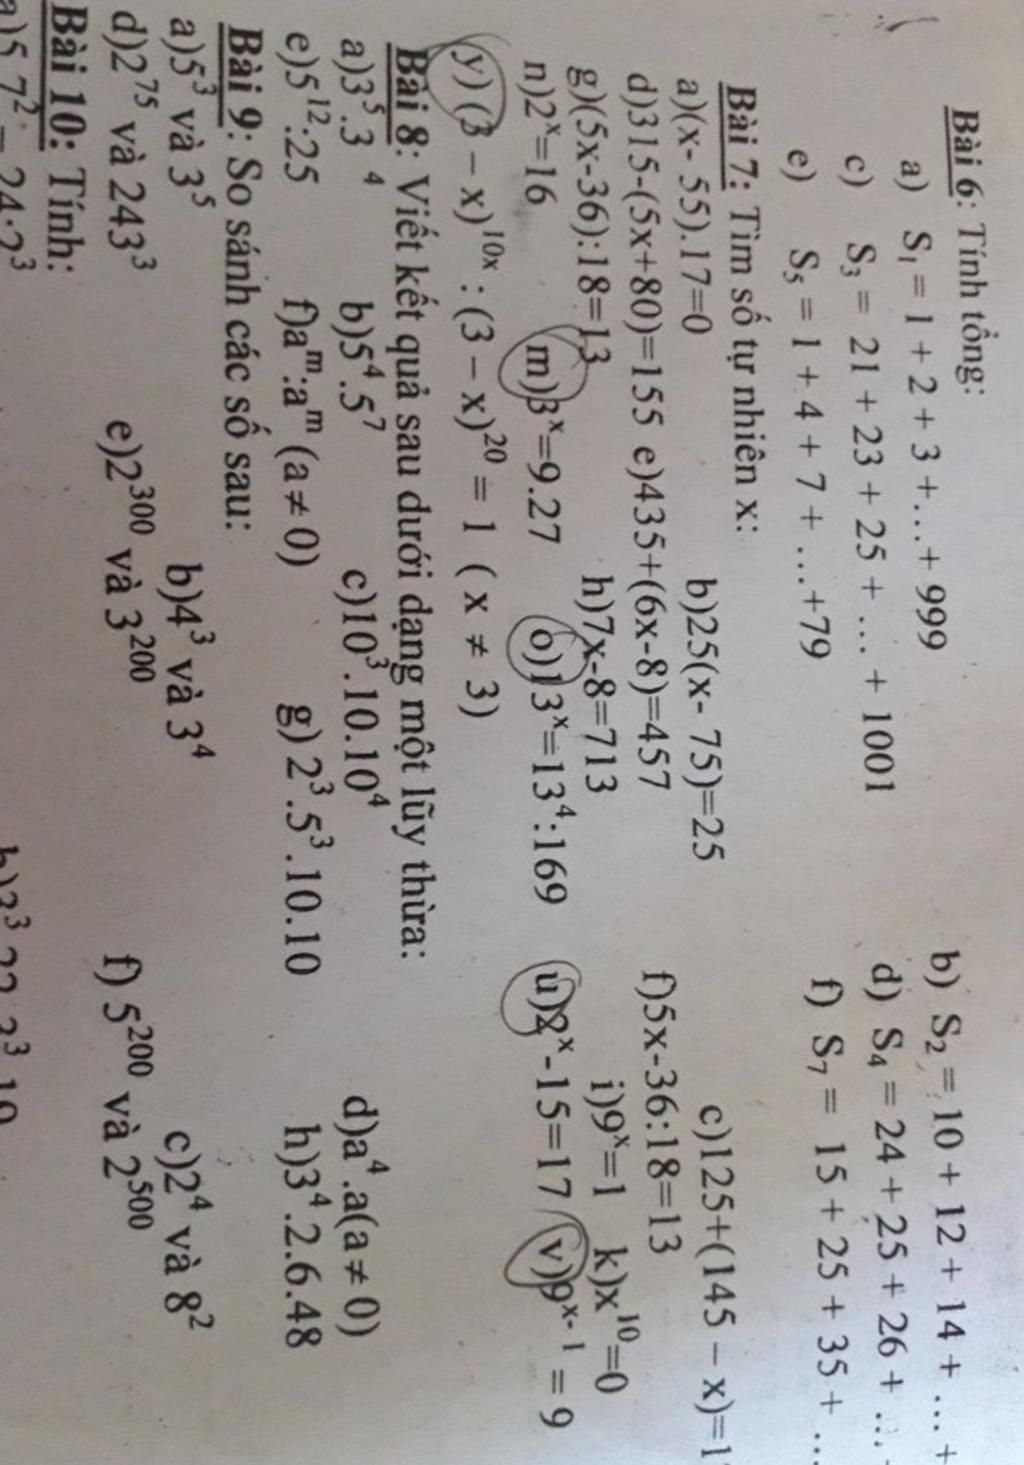 Bài 6: Tính tổng:
a) S₁ = 1 + 2 + 3 +…+ 999 b) S₂ = 10 + 12 + 14 + … +
c) S₃ = 21 + 23 + 25 + … + 1001 d) S₄ = 24 + 25 + 26 + …
e) S₅ = 1 + 4 + 7 + …+79 f) S₇ = 15 + 25 + 35 + …
Bài 7: Tìm số tự nhiên x:
a)(x- 55).17=0 b)25(x- 75)=25 c)125+(145 – x)=1
d)315-(5x+80)=155 e)435+(6x-8)=457 f)5x-36:18=13
g)(5x-36):18=13 h)7x-8=713 i)9ˣ=1 k)x¹⁰=0
n)2ˣ=16 m)3ˣ=9.27 o)13ˣ=13⁴:169 u)2ˣ-15=17 v)9ˣ⁻¹ = 9
y) (3 – x)¹⁰ˣ : (3 – x)²⁰ = 1 ( x ≠ 3)
Bài 8: Viết kết quả sau dưới dạng một lũy thừa:
a)3⁵.3⁴ b)5⁴.5⁷ c)10³.10.10⁴ d)a⁴.a(a ≠ 0)
e)5¹².25 f)aᵐ:aᵐ (a ≠ 0) g) 2³.5³.10.10 h)3⁴.2.6.48
Bài 9: So sánh các số sau:
a)5³ và 3⁵ b)4³ và 3⁴ c)2⁴ và 8²
d)2⁷⁵ và 243³ e)2³⁰⁰ và 3²⁰⁰ f) 5²⁰⁰ và 2⁵⁰⁰
Bài 10: Tính: